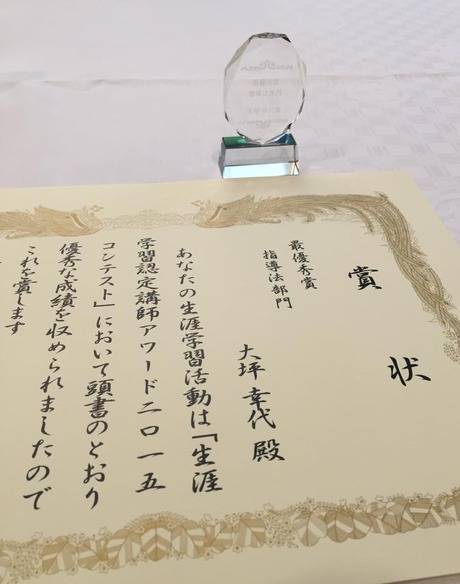 賞状
最優秀賞
指導法部門
大坪幸代殿
あなたの生涯学習活動は「生涯
学習認定講師アワード二〇一五
コンテスト」において頭書のとおり
優秀な成績を収められましたので
これを賞します